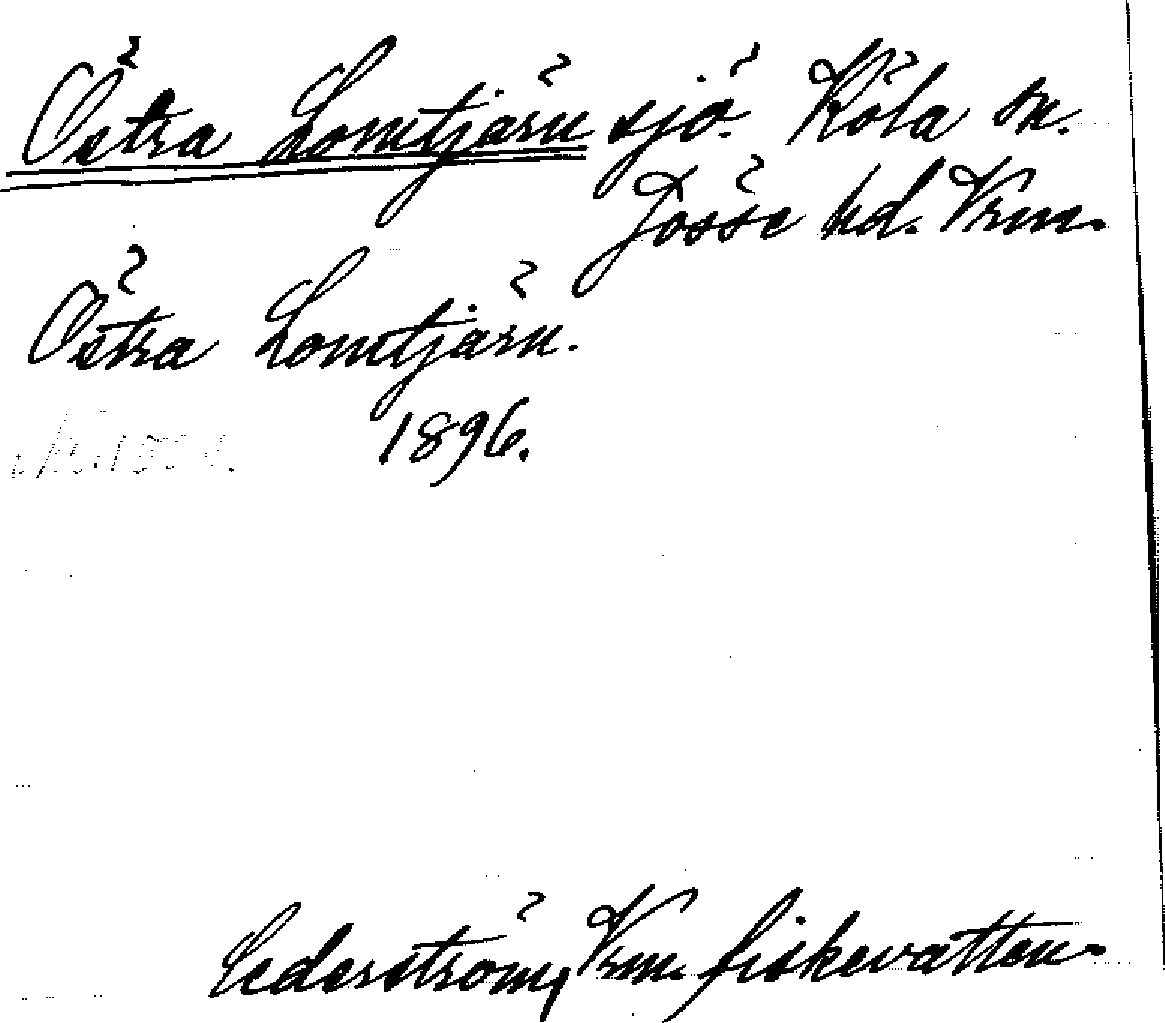 Östra Lomtjärn sjö. Köla sn.
Jösse hd. Vrm.
Östra Lomtjärn.
1896.
Cederström, Vrm. fiskevatten.